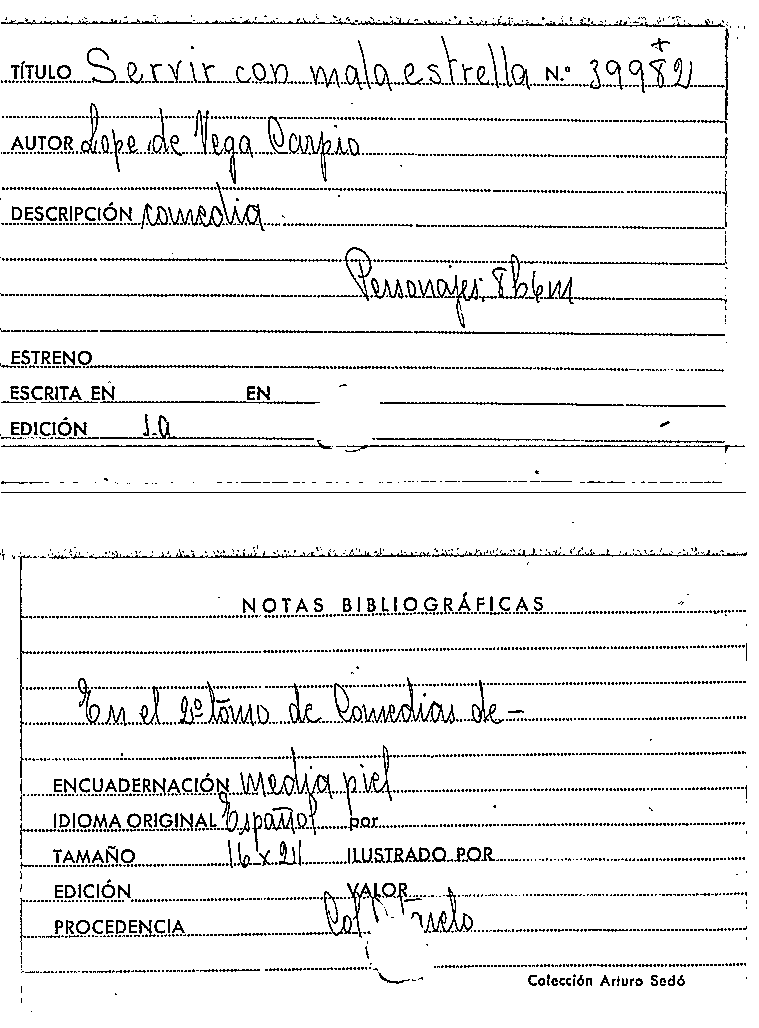 TÍTULO Servir con mala estrella N.º 39982
+
AUTOR Lope de Vega Carpio
DESCRIPCIÓN comedia
Personajes: 8h6m
ESTRENO
ESCRITA EN EN
EDICIÓN s.a
NOTAS BIBLIOGRÁFICAS
En el 2º tomo de Comedias de—
ENCUADERNACIÓN media piel
IDIOMA ORIGINAL Español por
TAMAÑO 16 x 21 ILUSTRADO POR
EDICIÓN VALOR
PROCEDENCIA Col
Colección Arturo Sedó